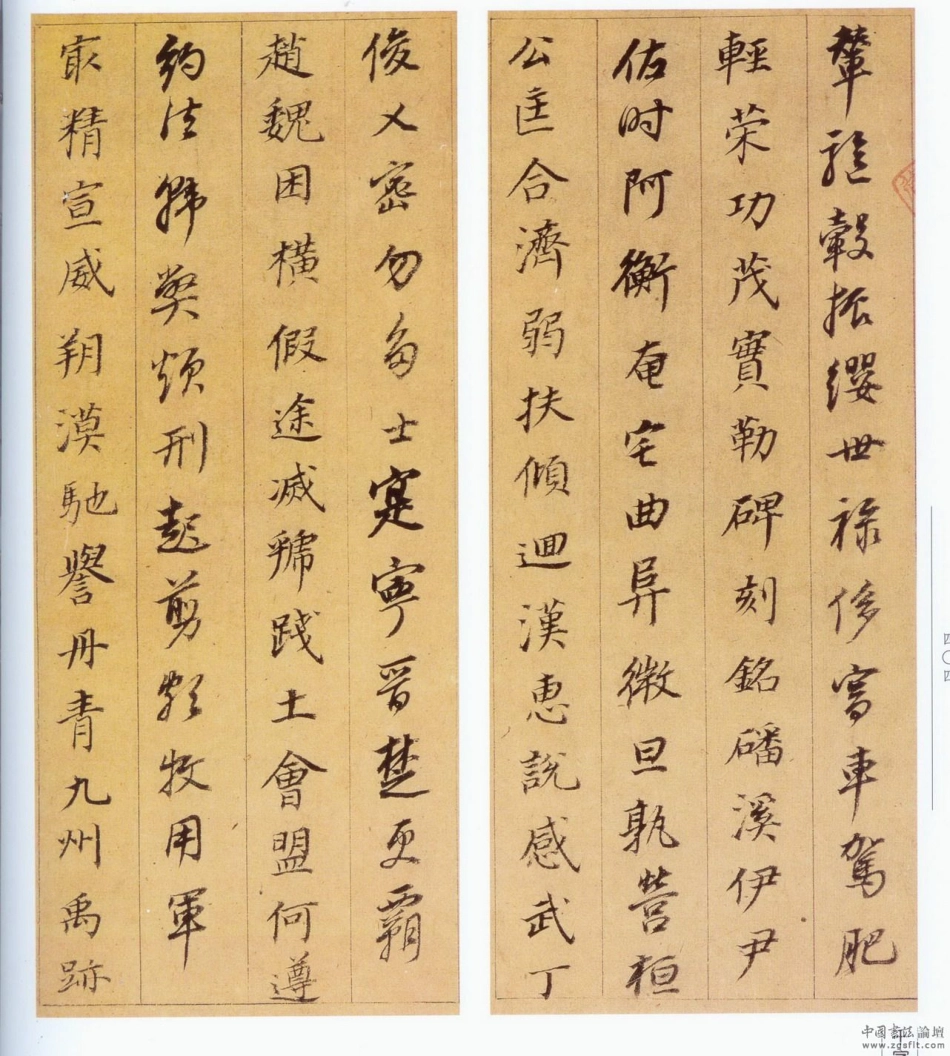 輦駈轂振纓世祿侈富車駕肥
輕荣功茂實勒碑刻銘磻溪伊尹
佑时阿衡奄宅曲阜微旦孰營桓
公匡合濟弱扶傾迴漢惠說感武丁
俊乂密勿多士寔寧晉楚更覇
趙魏困横假途滅虢踐土會盟何遵
約法韩弊煩刑起翦頗牧用軍
㝡精宣威朔漠馳譽丹青九州禹跡
四〇四
中國書法論壇
www.zgsflt.com